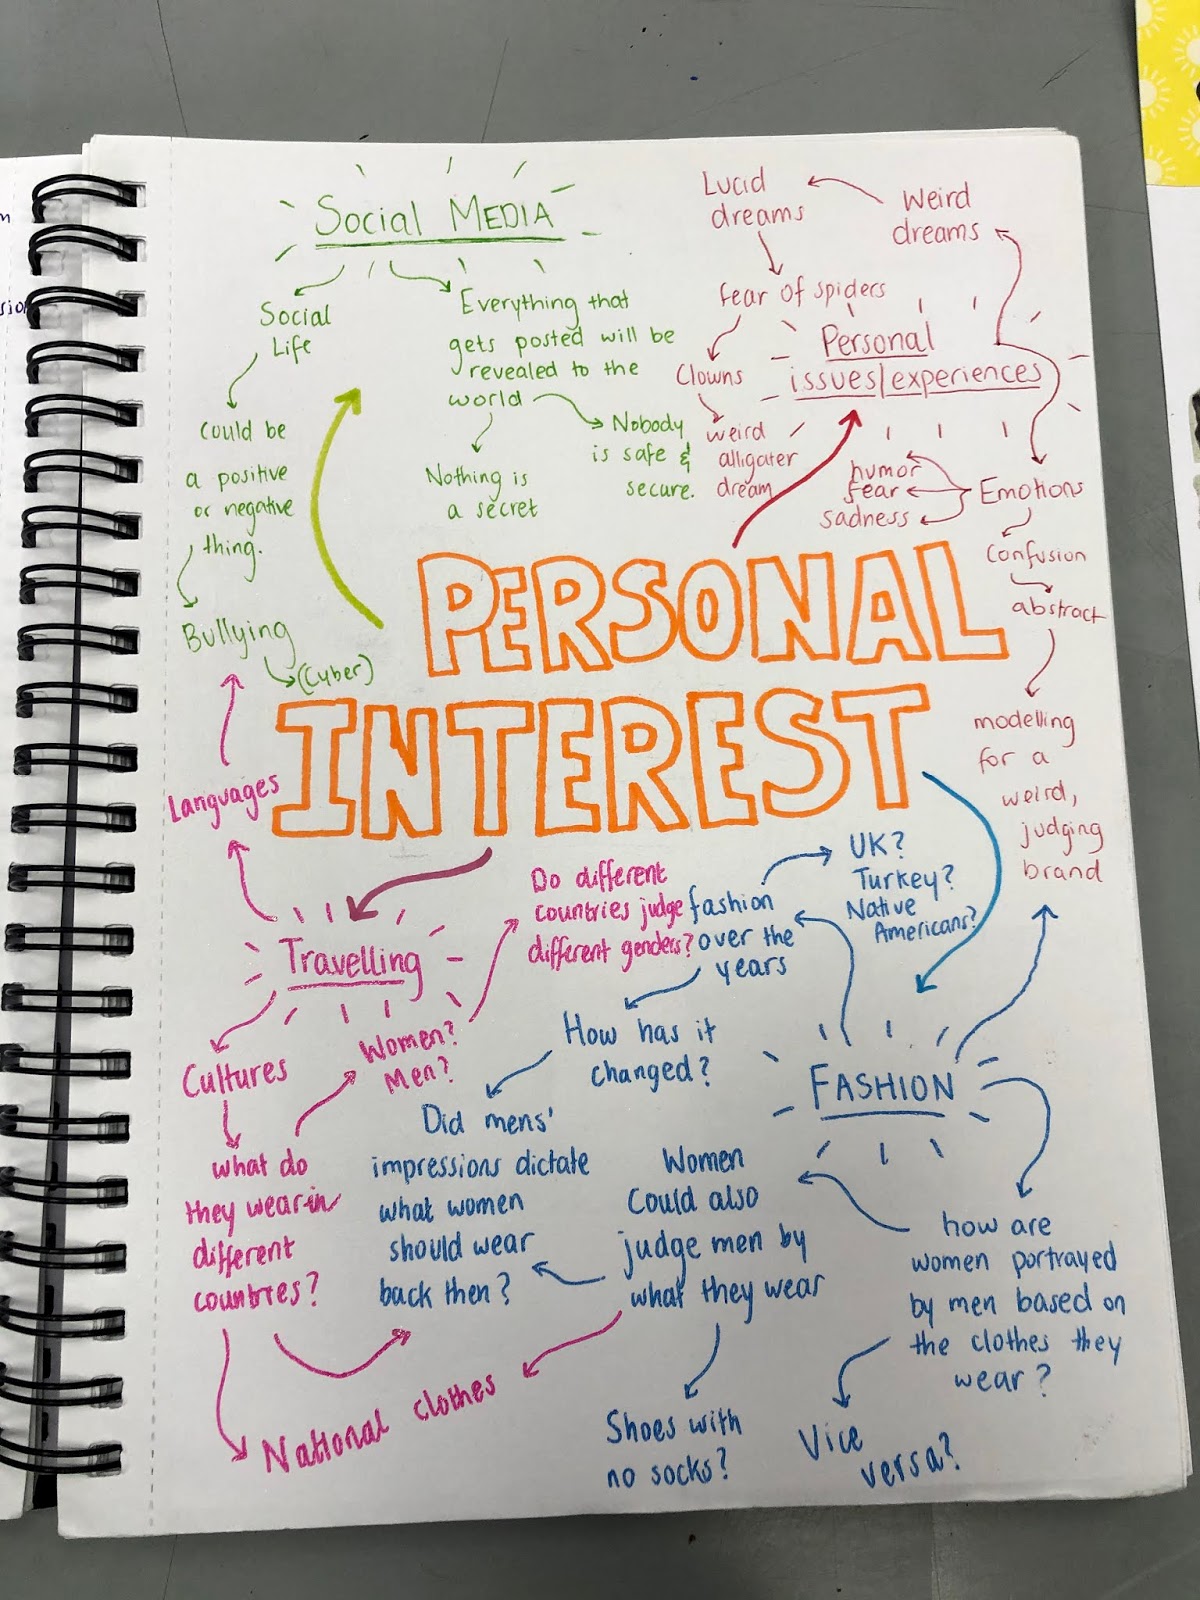 Social MEDIA
Social
Life
could be
a positive
or negative
thing.
Bullying
(Cyber)
Everything that
gets posted will be
revealed to the
world
Nothing is
a secret
Nobody
is safe &
secure.
Lucid
dreams
Weird
dreams
fear of spiders
Clowns
weird
alligater
dream
Personal
issues/experiences
humor
fear
sadness
Emotions
Confusion
abstract
modelling
for a
weird,
judging
brand
PERSONAL
INTEREST
Languages
Travelling
Cultures
what do
they wear in
different
countries?
Women?
Men?
Do different
countries judge
different genders?
National clothes
fashion
over the
years
UK?
Turkey?
Native
Americans?
How has it
changed?
Did mens'
impressions dictate
what women
should wear
back then?
Women
Could also
judge men by
what they wear
Shoes with
no socks?
FASHION
how are
women portrayed
by men based on
the clothes they
wear?
Vice
versa?